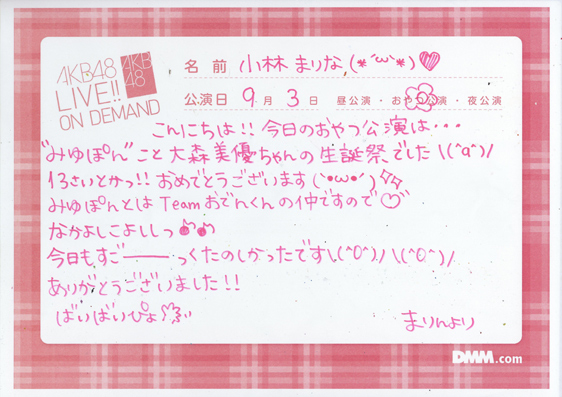 AKB48
LIVE!!
ON DEMAND
AKB
48
名前 小林 まりな (*´ω`*)♡
公演日 9月 3日 昼公演・おやつ公演・夜公演
こんにちは!! 今日のおやつ公演は・・・
"みゆぽん"こと大森美優ちゃんの生誕祭でした\(^a^)/
13さいとかっ!! おめでとうございます(`•ω•´)✧✧
みゆぽんとは Teamおでんくんの仲ですので♡
なかよしこよしっ
今日もすご━━━っくたのしかったです\(^O^)/\(^O^)/
ありがとうございました!!
ばいばいぴよ
まりんより
DMM.com